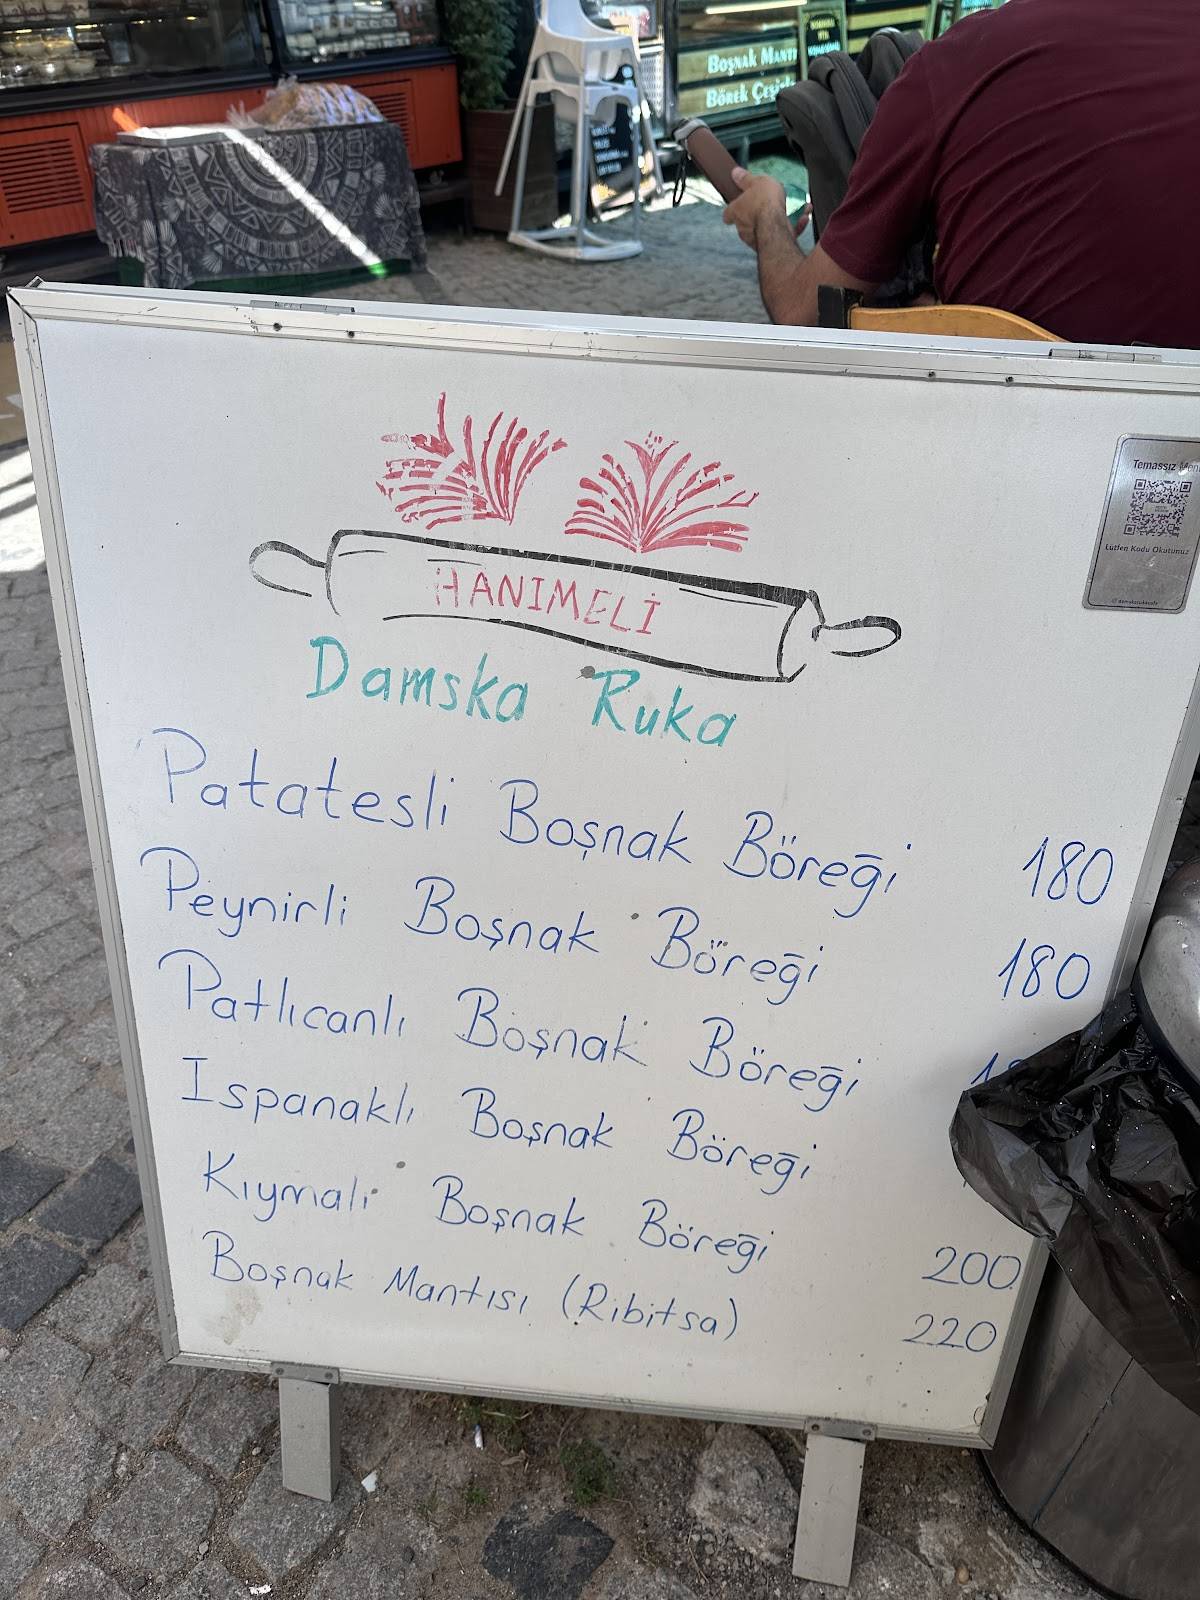 BOŞNAK MANTI
BÖREK ÇEŞİTLERİ
HANIMELİ
Damska Ruka
Patatesli Boşnak Böreği 180
Peynirli Boşnak Böreği 180
Patlıcanlı Boşnak Böreği
Ispanaklı Boşnak Böreği
Kıymalı Boşnak Böreği 200
Boşnak Mantısı (Ribitsa) 220
Temassız Menü
Lütfen Kodu Okutunuz